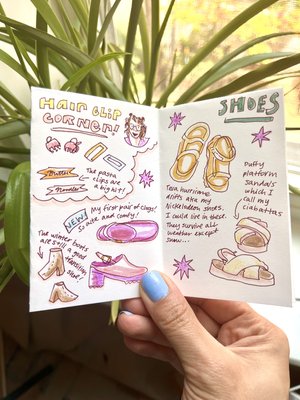 HAIR CLIP
CORNER!
The pasta
clips are
a big hit!
NEW!
My first pair of clogs!
So cute and comfy!
The winter boots
are still a good
Hamilton
shoe!
SHOES
Teva hurricane
xlt2s aka my
Nickelodeon shoes.
I could live in these.
They survive all
weather except
snow...
Puffy
platform
sandals
which I
call my
ciabattas